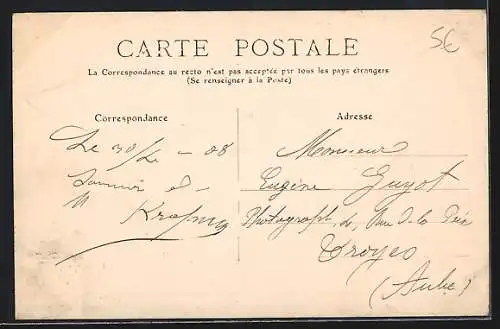 5€
CARTE POSTALE
La Correspondance au recto n'est pas acceptée par tous les pays étrangers
(Se renseigner à la Poste)
Correspondance
Adresse
Le 30/ - 08
Souvenir d
Monsieur
Eugène Guyot
Photograph, Rue de la
Troyes
(Aube)